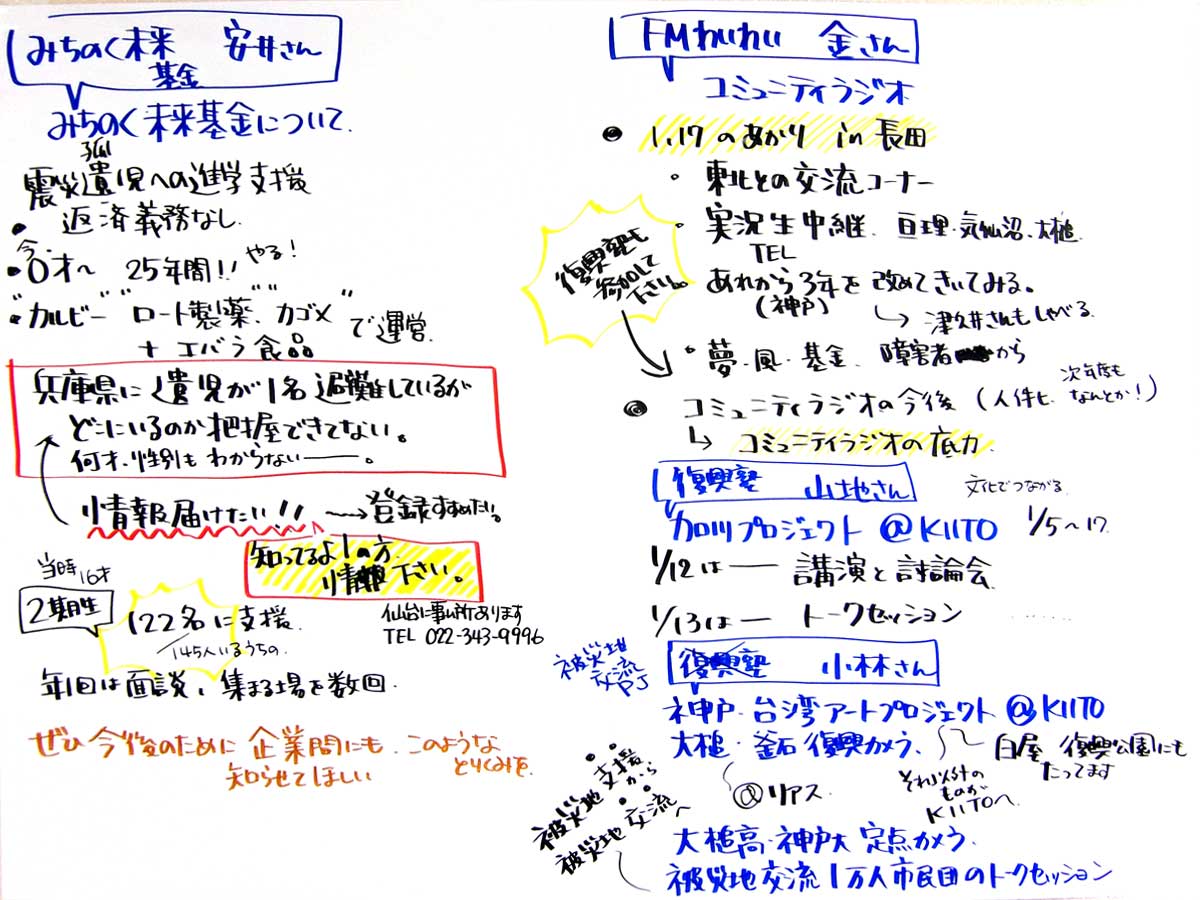 みちのく未来基金 安井さん
みちのく未来基金について.
震災遺児への進学支援
返済義務なし.
今.0才〜 25年間!! やる!
"カルビー" "ロート製薬" "カゴメ" で運営.
+ エバラ食品
兵庫県に遺児が1名避難しているが
どこにいるのか把握できてない。
何才、性別も わからない——。
情報届けたい!! → 登録すすめたい。
知ってるよ!の方
情報下さい。
当時16才
2期生
122名に支援.
145人いるうちの.
仙台に事ム所あります
TEL 022-343-9996
年1回は面談、集まる場を数回.
ぜひ今後のために 企業間にも、このような
とりくみを.
知らせてほしい
FMわいわい 金さん
コミュニティラジオ
1.17のあかり in 長田
東北との交流コーナー
実況生中継、亘理・気仙沼・大槌.
TEL
あれから3年を改めてきいてみる。
(神戸)
津久井さんもしゃべる.
夢・風・基金、障害者から
復興塾も
参加して
下さい。
コミュニティラジオの今後 (人件ヒ、次年度もなんとか!)
コミュニティラジオの底力
復興塾 山地さん
文化でつながる
加川プロジェクト @KIITO 1/5〜17
1/12は—— 講演と討論会
1/13は— トークセッション ……
被災地
交流
PJ
復興塾 小林さん
神戸・台湾アートプロジェクト @KIITO
大槌・釜石復興カメラ、
白屋 復興公園にも
たってます
@リアス
それ以外の
ものが
KIITOへ
被災地支援
から
被災地交流へ
大槌高・神戸大 定点カメラ
被災地交流1万人市民団のトークセッション